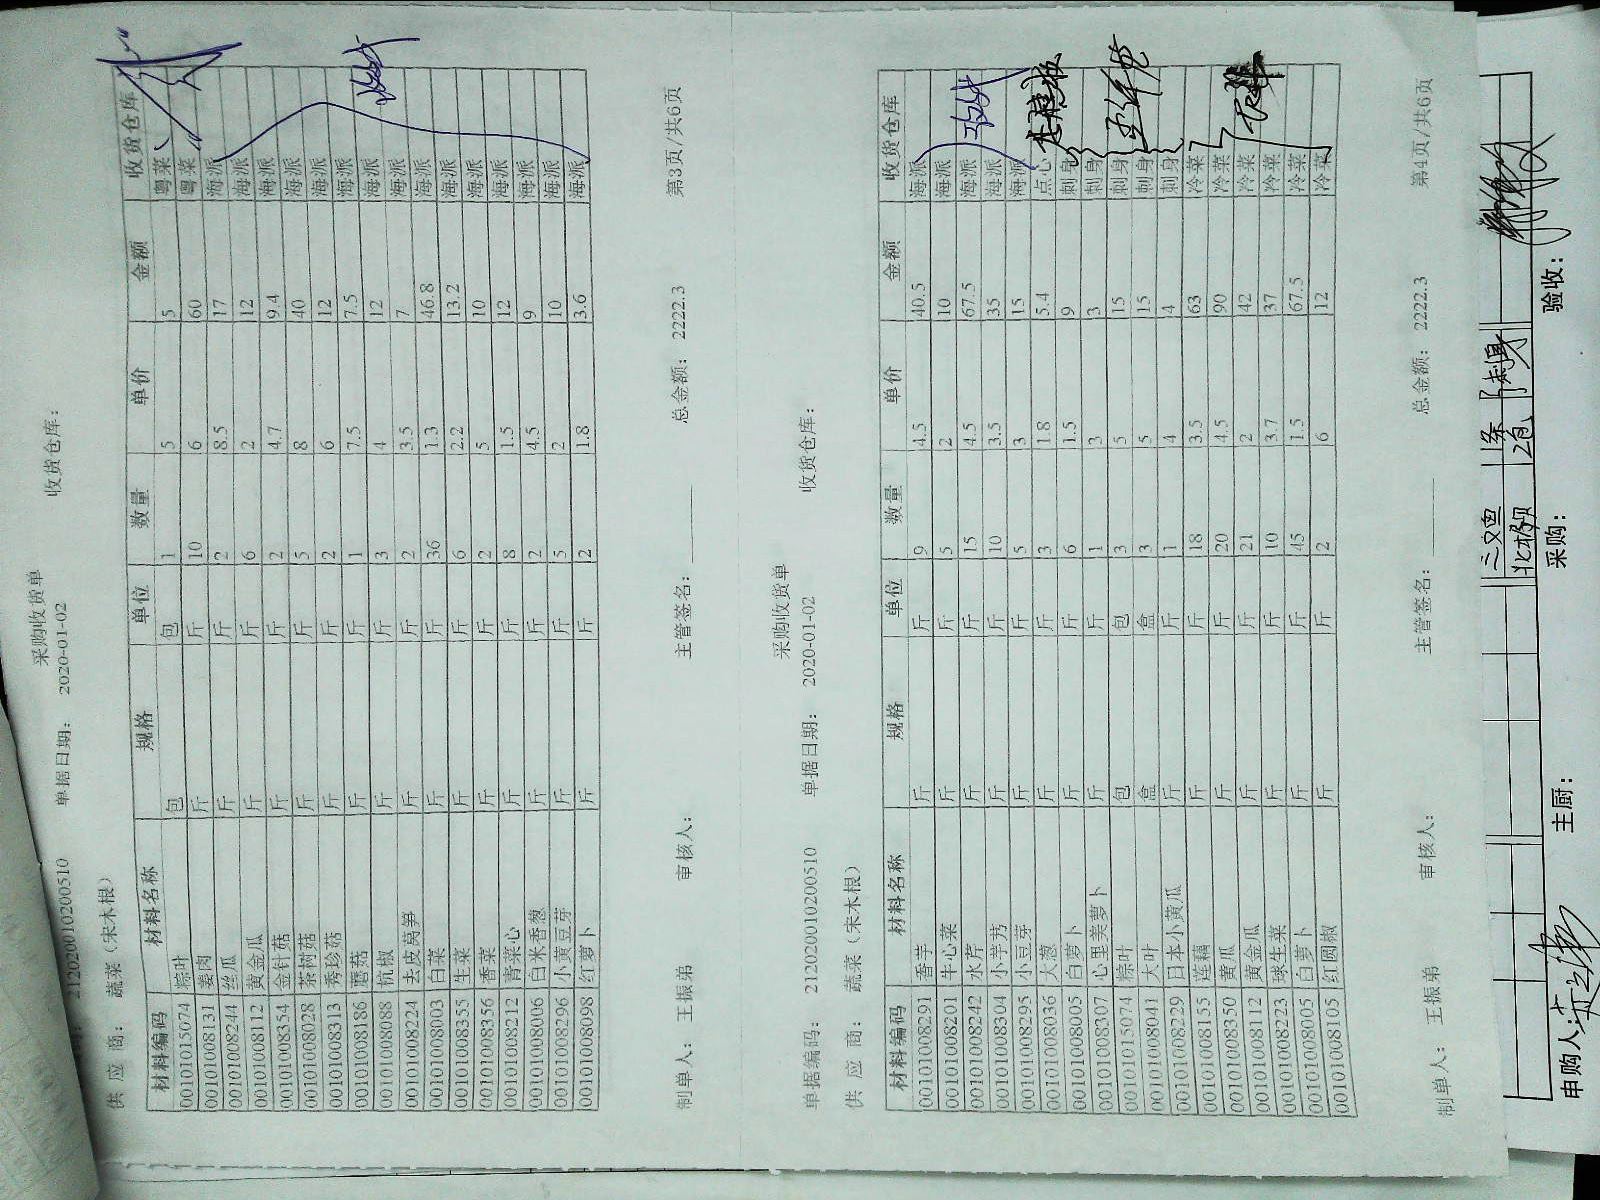 采购收货单
212020010200510 单据日期： 2020-01-02 收货仓库：
供 应 商： 蔬菜（宋木根）
材料编码 材料名称 规格 单位 数量 单价 金额 收货仓库
00101015074 粽叶 包 包 1 5 5 粤菜
00101008131 姜肉 斤 斤 10 6 60 粤菜
00101008244 丝瓜 斤 斤 2 8.5 17 海派
00101008112 黄金瓜 斤 斤 6 2 12 海派
00101008354 金针菇 斤 斤 2 4.7 9.4 海派
00101008028 茶树菇 斤 斤 5 8 40 海派
00101008313 秀珍菇 斤 斤 2 6 12 海派
00101008186 蘑菇 斤 斤 1 7.5 7.5 海派
00101008088 杭椒 斤 斤 3 4 12 海派
00101008224 去皮莴笋 斤 斤 2 3.5 7 海派
00101008003 白菜 斤 斤 36 1.3 46.8 海派
00101008355 生菜 斤 斤 6 2.2 13.2 海派
00101008356 香菜 斤 斤 2 5 10 海派
00101008212 青菜心 斤 斤 8 1.5 12 海派
00101008006 白米香葱 斤 斤 2 4.5 9 海派
00101008296 小黄豆芽 斤 斤 5 2 10 海派
00101008098 红萝卜 斤 斤 2 1.8 3.6 海派
制单人： 王振弟 审核人： 主管签名： 总金额： 2222.3 第3页/共6页
采购收货单
单据编码： 212020010200510 单据日期： 2020-01-02 收货仓库：
供 应 商： 蔬菜（宋木根）
材料编码 材料名称 规格 单位 数量 单价 金额 收货仓库
00101008291 香芋 斤 斤 9 4.5 40.5 海派
00101008201 牛心菜 斤 斤 5 2 10 海派
00101008242 水芹 斤 斤 15 4.5 67.5 海派
00101008304 小芋艿 斤 斤 10 3.5 35 海派
00101008295 小豆芽 斤 斤 5 3 15 海派
00101008036 大葱 斤 斤 3 1.8 5.4 点心
00101008005 白萝卜 斤 斤 6 1.5 9 刺身
00101008307 心里美萝卜 斤 斤 1 3 3 刺身
00101015074 粽叶 包 包 3 5 15 刺身
00101008041 大叶 盒 盒 3 5 15 刺身
00101008229 日本小黄瓜 斤 斤 1 4 4 刺身
00101008155 莲藕 斤 斤 18 3.5 63 冷菜
00101008350 黄瓜 斤 斤 20 4.5 90 冷菜
00101008112 黄金瓜 斤 斤 21 2 42 冷菜
00101008223 球生菜 斤 斤 10 3.7 37 冷菜
00101008005 白萝卜 斤 斤 45 1.5 67.5 冷菜
00101008105 红圆椒 斤 斤 2 6 12 冷菜
制单人： 王振弟 审核人： 主管签名： 总金额： 2222.3 第4页/共6页
三文鱼 1条 刺身
北极贝 2包
申购人： 主厨： 采购： 验收：